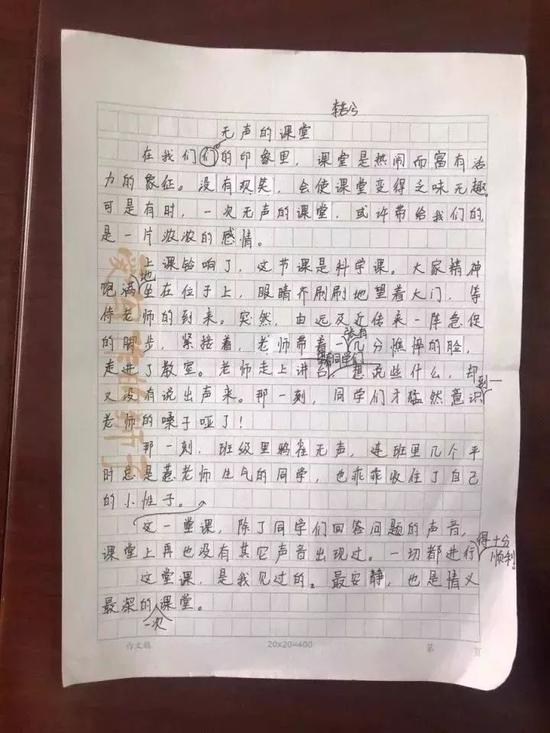 无声的课堂
在我们们的印象里，课堂是热闹而富有活
力的象征。没有欢笑，会使课堂变得乏味无趣
可是有时，一次无声的课堂，或许带给我们的
是一片浓浓的感情。
上课铃响了，这节课是科学课。大家精神
饱满地坐在位子上，眼睛齐刷刷地望着大门，等
待老师的到来。突然，由远及近传来一阵急促
的脚步，紧接着，老师带着一张有几分憔悴的脸，
走进了教室。老师走上讲台，想同学们说些什么，却
又没有说出声来。那一刻，同学们才猛然意识到一
老师的嗓子哑了！
那一刻，班级里鸦雀无声，连班里几个平
时总是惹老师生气的同学，也乖乖收住了自己
的小性子。
这一堂课，除了同学们回答问题的声音，
课堂上再也没有其它声音出现过。一切都进行得十分顺利！
这堂课，是我见过的。最安静，也是情义
最深的一次课堂。
作文纸
20×20=400
第 页